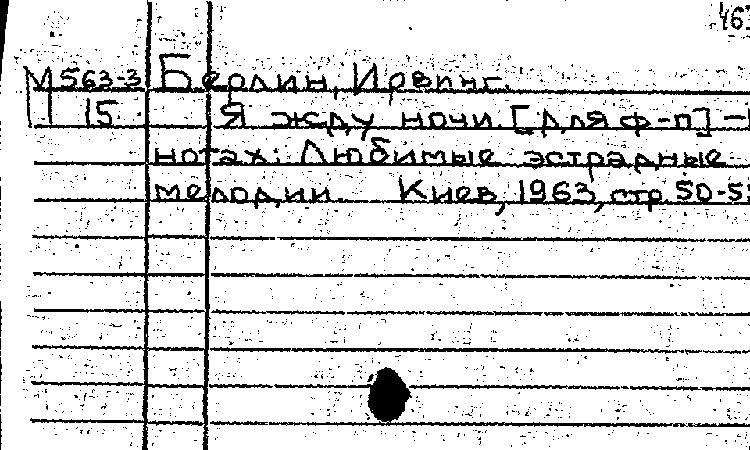 463
М563-3 Берлин, Ирвинг.
15 Я жду ночи. [Для ф-п] -
нотах: Любимые эстрадные
мелодии. Киев, 1963, стр. 50-5